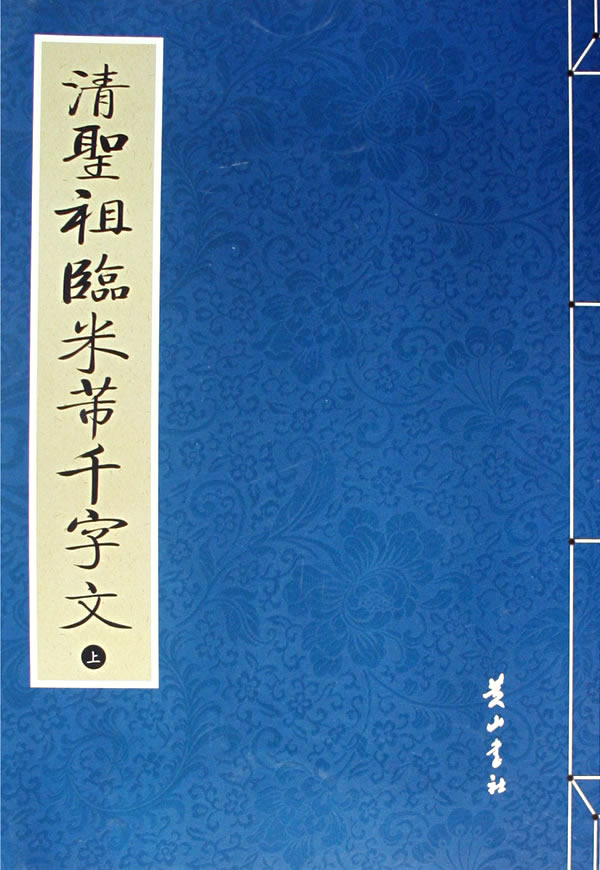 清聖祖臨米芾千字文
上
黄山書社